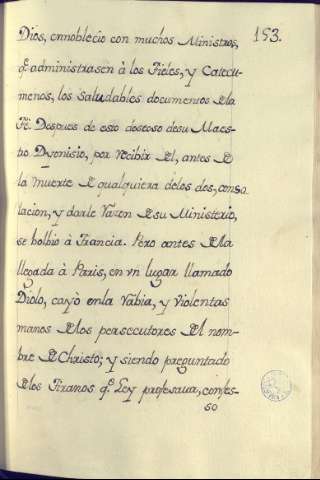 153.
Dios, ennoblecio con muchos Ministros,
q.e administrasen à los Fieles, y Catecu-
menos, los saludables documentos de la
Fè. Despues de esto deseoso de su Maes-
tro Dyonisio, por recibir de èl, antes de
la muerte de qualquiera de los dos, conso
lacion, y darle razon de su Ministerio,
se bolbiò à Francia. Pero antes de la
llegada à Paris, en vn lugar llamado
Diolo, cayò en la rabia, y violentas
manos de los persecutores del nom-
bre de Christo; y siendo preguntado
de los Tiranos q.e Ley profesava, confes-
so